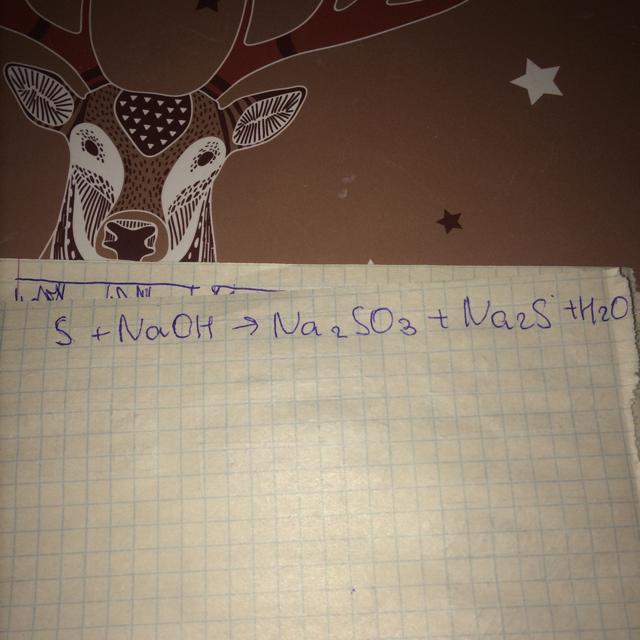 S + NaOH → Na₂SO₃ + Na₂S + H₂O